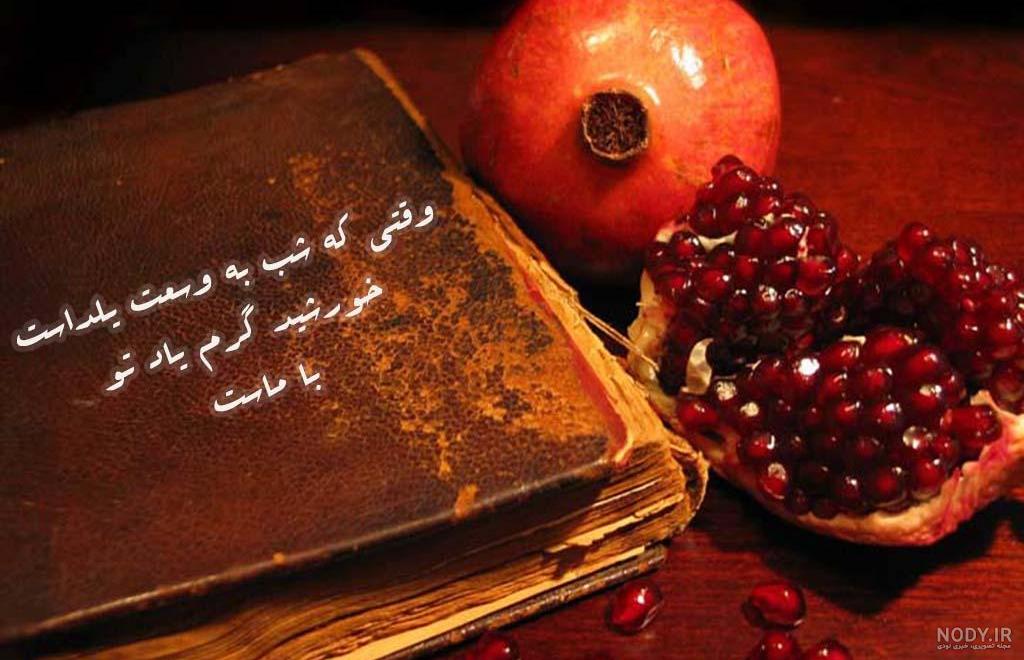 وقتی که شب به وسعت یلداست
خورشید گرم یاد تو
با ماست
NODY.IR
مجله تصویری، خبری نودی